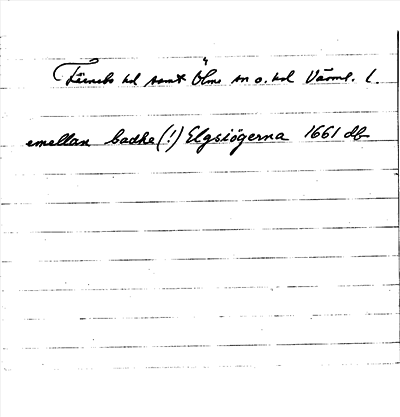 Färnebo hd samt Ölme sn o. hd Värml. l.
emellan badhe (!) Elgsiögerna 1661 db